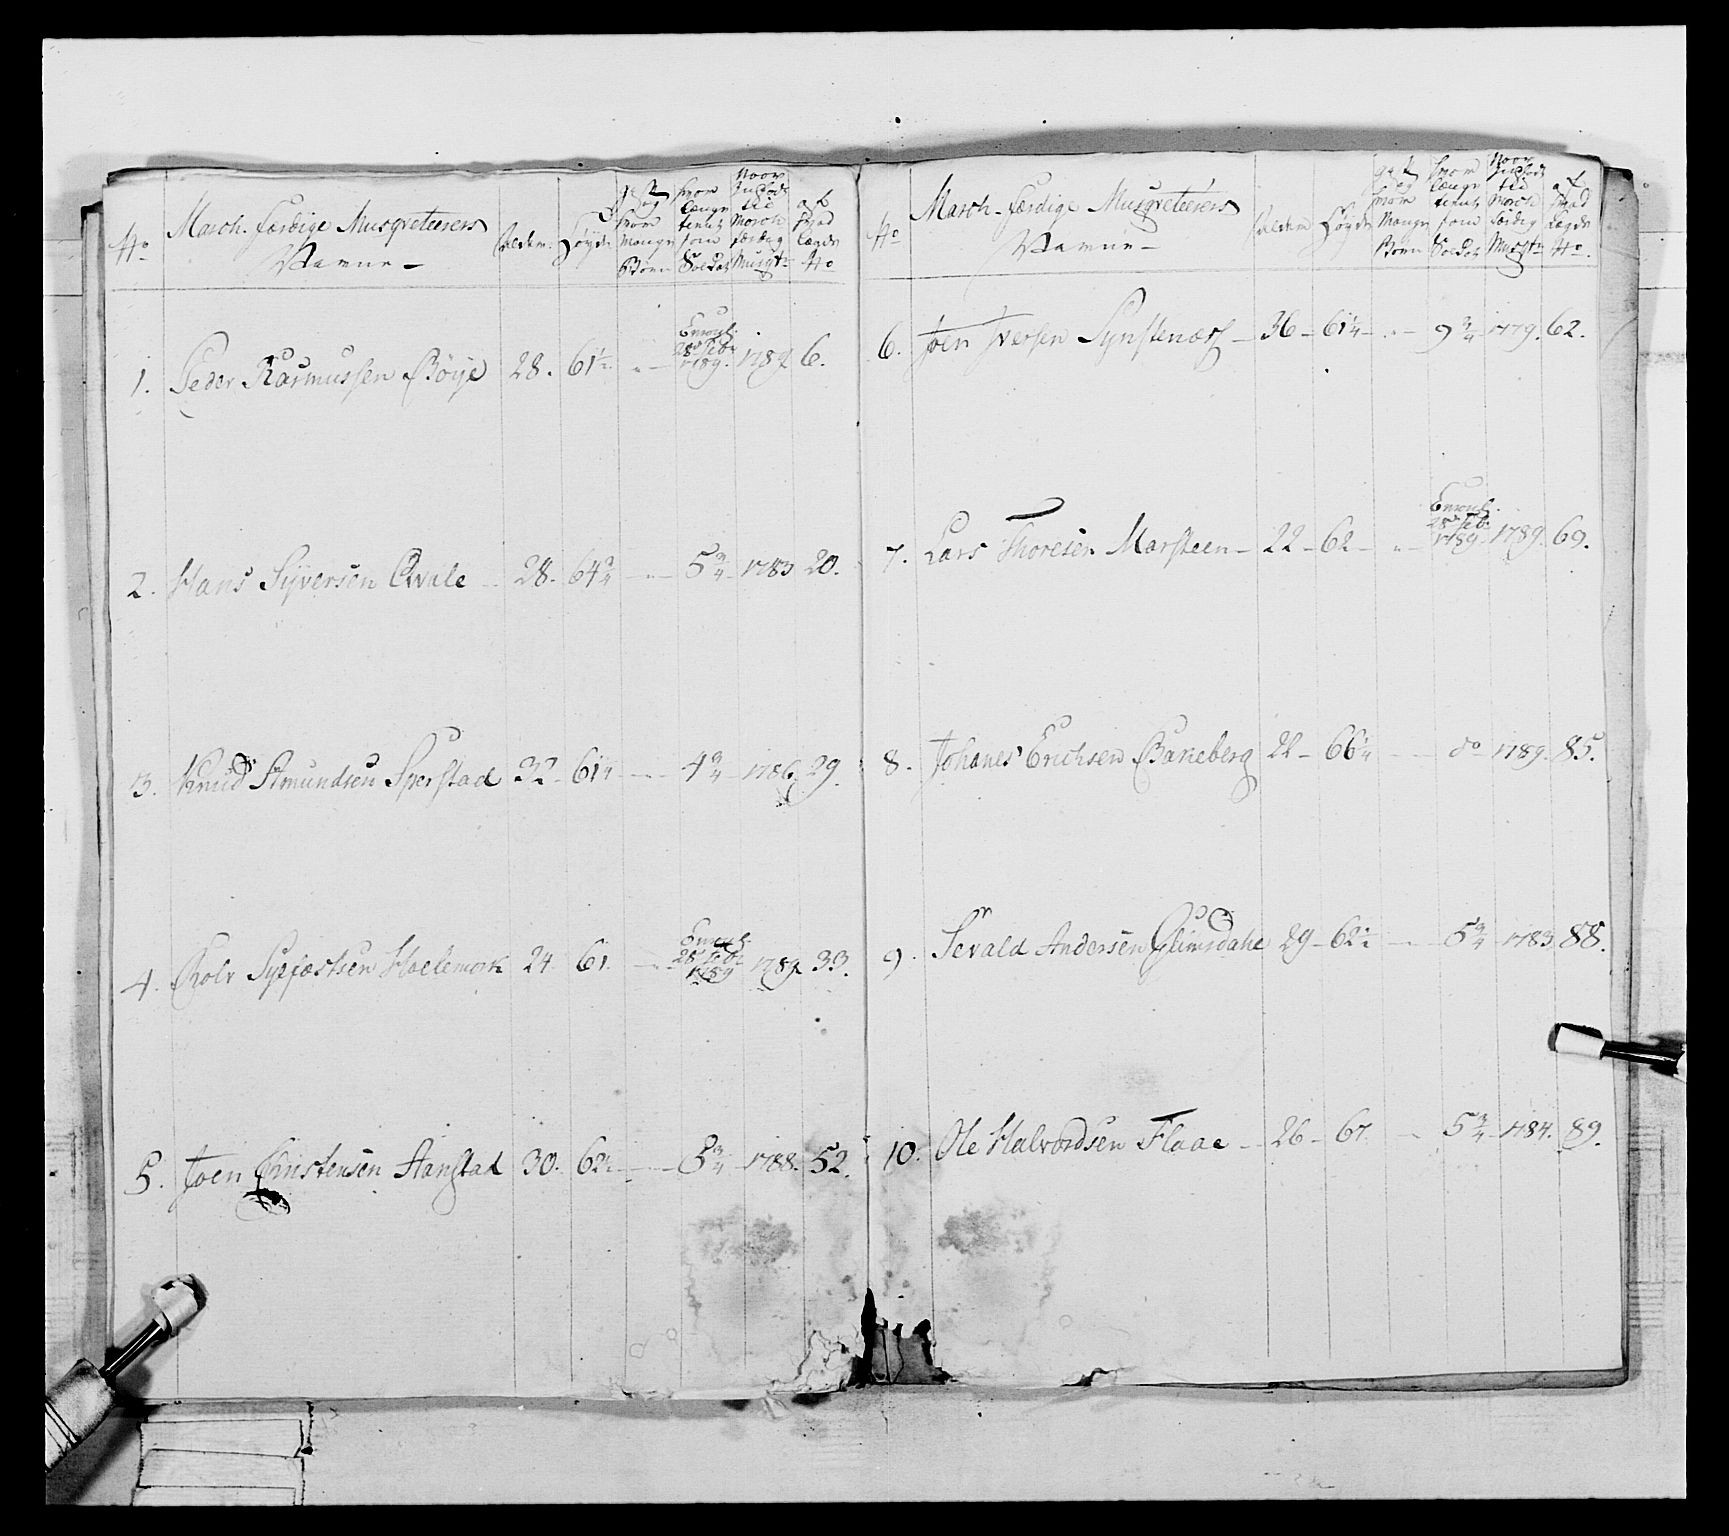 No
March. færdige Musqveteerers
Nafne
Alder
Høyde
gift og hvor mange Børn
hvor længe tient som Soldat
Naar Indsadt til March færdig Musqt:
af Lægds No
1. Peder Rasmussen Bøije 28. 61½ " Enroul: 28 Feb: 1789. 1789 6.
2. Hans Syversen Qvale 28. 64¾ 5¾ 1783 20.
3. Knud Amundsen Sperstad 32 61¼ 4¾ 1786 29.
4. Rolv Syvfæstsen Haelemork 24 61. Enroul: 28 Feb: 1789 1789 33.
5. Joen Christensen Aanstad 30. 62½ 5¾ 1788. 52.
No
March. færdige Musqveteerers
Nafne
Alder
Høyde
gift og hvor mange Børn
hvor længe tient som Soldat
Naar Indsadt til March færdig Musqt:
af Lægds No
6. Joen Iversen Synstenæss 36 61¼ " 9¾ 1779. 62.
7. Lars Thoresen Marsteen 22 62 " Enroul: 28 Feb: 1789 1789. 69.
8. Johanes Erichsen Bakeberg 22 66¼ do 1789. 85.
9. Sevald Andersen Glimsdahl 29 62½ 5¾ 1783. 88.
10. Ole Halvordsen Flaae 26 67. 5¾ 1784. 89.